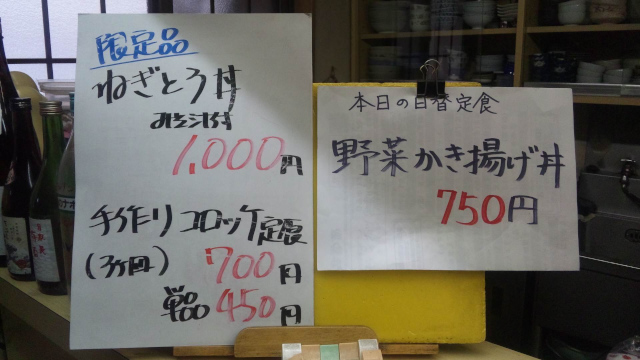 限定品
ねぎとろ丼
みそ汁付
1,000円
手作りコロッケ定食
(3ヶ回)
700円
単品 450円
本日の日替定食
野菜かき揚げ丼
750円